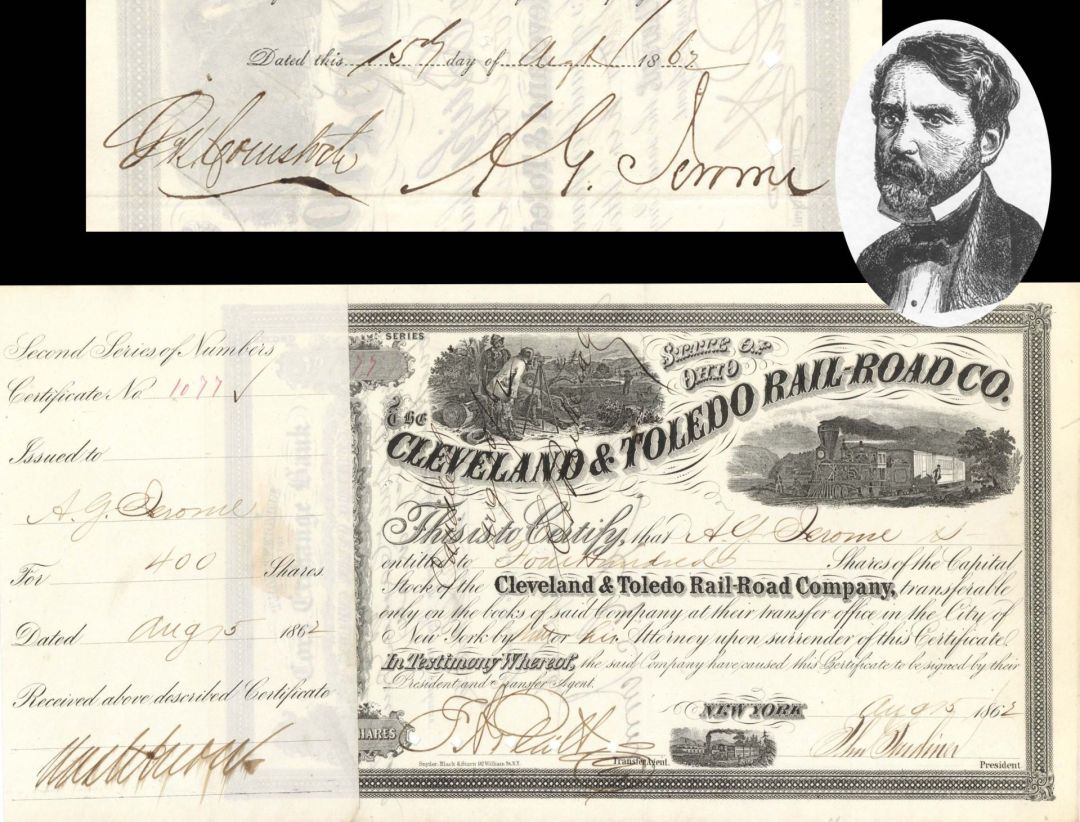 Dated this 15th day of Augt 1862
A G. Jerome
Second Series of Numbers
Certificate No 1077
Issued to
A. G. Jerome
For 400 Shares
Dated Aug 15 1862
Received above described Certificate
SERIES
77
STATE OF OHIO
THE
CLEVELAND & TOLEDO RAIL-ROAD CO.
This is to Certify, that A G Jerome is
entitled to Four Hundred Shares of the Capital
Stock of the Cleveland & Toledo Rail-Road Company, transferable
only on the books of said Company at their transfer office in the City of
New York by him or his Attorney upon surrender of this Certificate.
In Testimony Whereof, the said Company have caused this Certificate to be signed by their
President and Transfer Agent.
NEW YORK Aug 15 1862
SHARES
Snyder, Black & Sturn 92 William St. N.Y.
Transfer Agent.
President